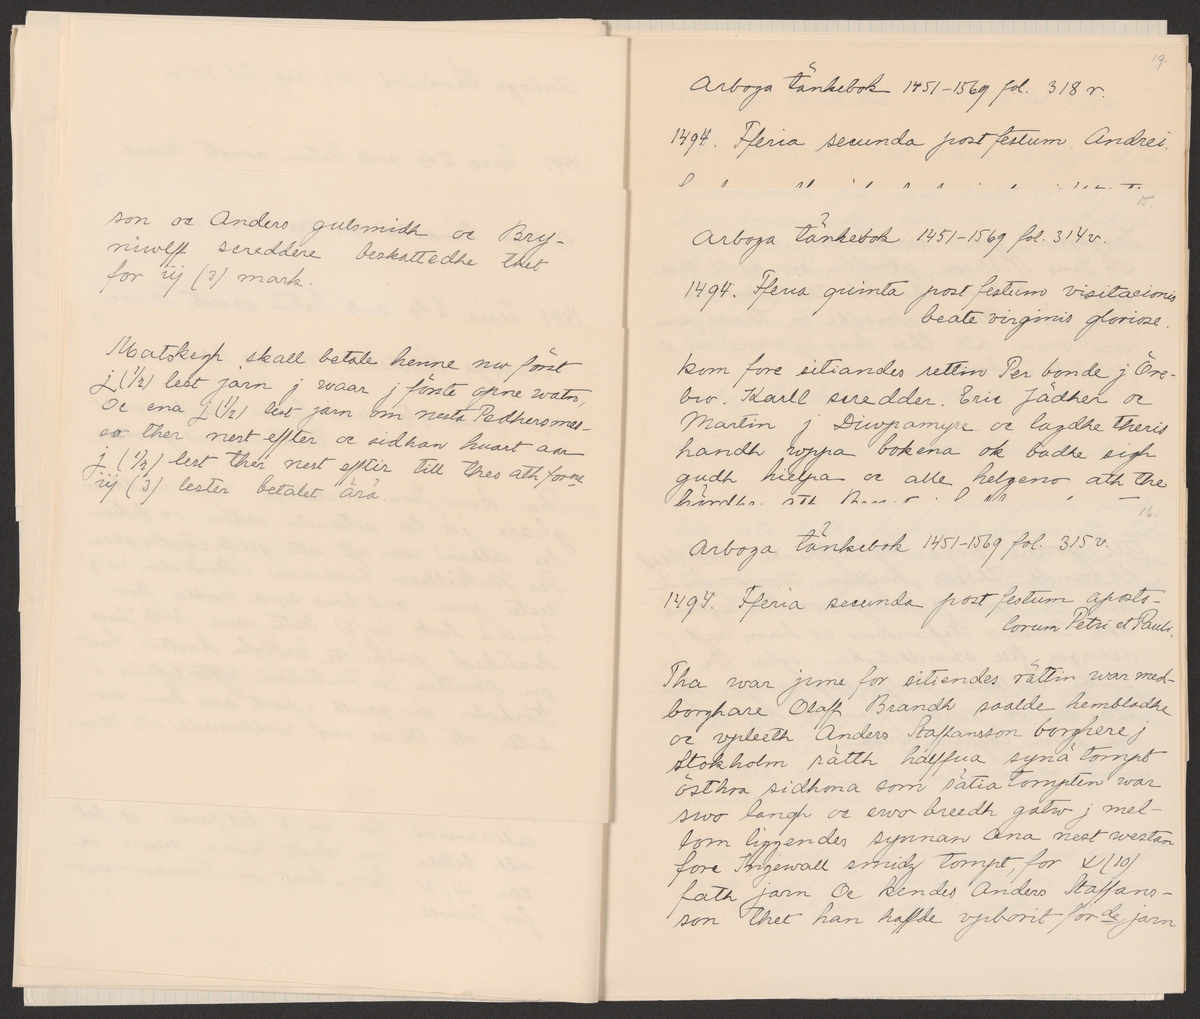 son oc Anders gulsmidh oc Bry-
niwlff screddere beskattedhe thet
for iij (3) mark.
Matskerp skall betale henne nw först
j (1/2) lest jarn j waar j förste öpne watn,
Oc ena j (1/2) lest jarn om nesta Pedhersmes-
so ther nest effter oc sidhan huart aar
j (1/2) lest ther nest efftir till thes ath forne
iij (3) lester betalet ärä.
19.
Arboga tänkebok 1451-1569 fol. 318 r.
1494. Fferia secunda post festum Andrei.
15.
Arboga tänkebok 1451-1569 fol. 314 v.
1494. Fferia quinta post festum visitacionis
beate virginis gloriose.
kom fore sitiandes rettin Per bonde j Öre-
bro. Karll scredder. Eric Jädher oc
Martin j Diwpamyre oc lagdhe theris
handh wppa bokena ok badhe sigh
gudh hielpa oc alle helgeno ath the
16.
Arboga tänkebok 1451-1569 fol. 315 v.
1494. Fferia secunda post festum aposto-
lorum Petri et Pauli.
Tha war jnne for sitiendes rättin war med-
borghare Olaff Brandh saalde hembladhe
oc vpleeth Anders Staffansson borghere j
Stokholm rätth hálffua synä tompt
östhra sidhona som rätia tompten war
swo langh oc swo breedh gatw j mel-
lom liggendes synnan ana nest westan
fore Ingewall smidz tompt, for x (10)
fath jarn Oc kendes Anders Staffans-
son thet han haffde vpborit forde jarn